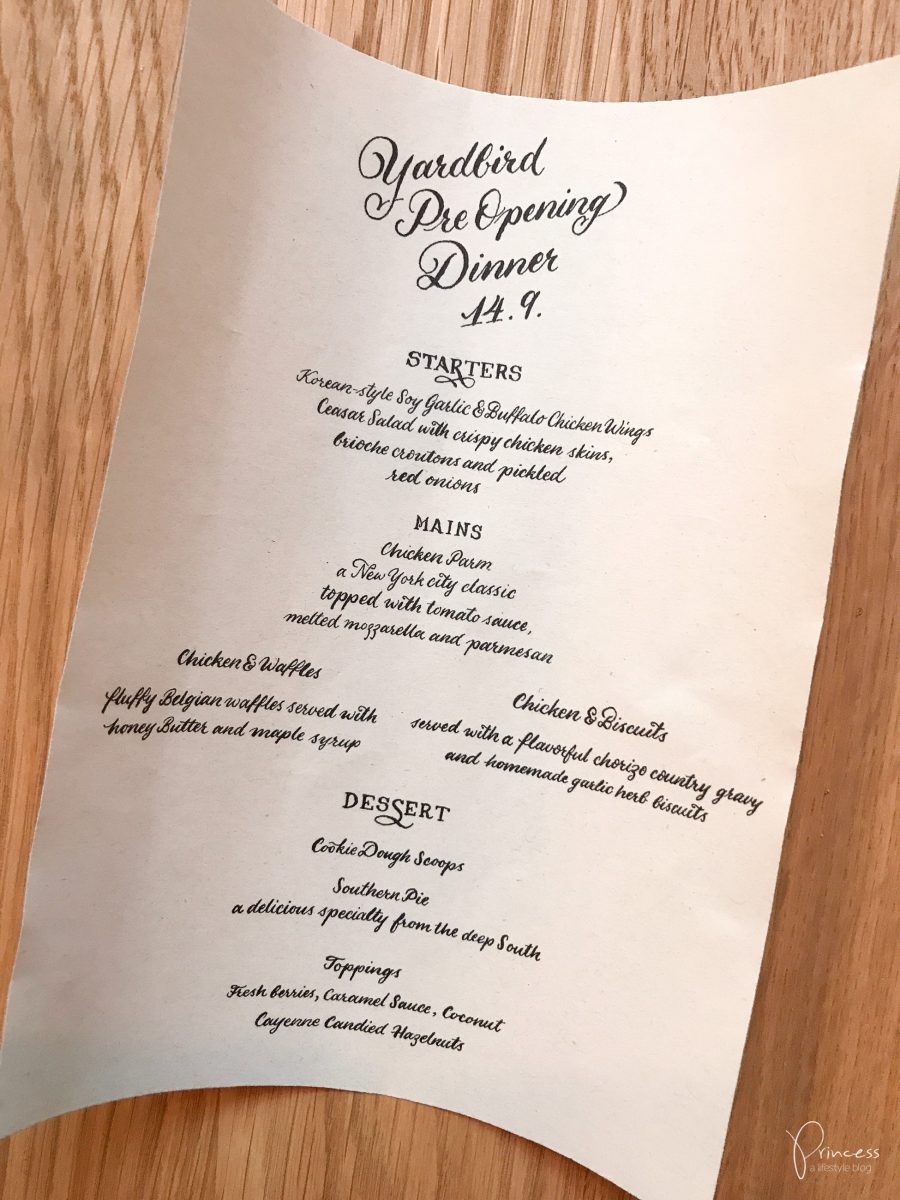 Yardbird
Pre Opening
Dinner
14.9.
STARTERS
Korean-style Soy Garlic & Buffalo Chicken Wings
Ceasar Salad with crispy chicken skins,
brioche croutons and pickled
red onions
MAINS
Chicken Parm
a New York city classic
topped with tomato sauce,
melted mozzarella and parmesan
Chicken & Waffles
fluffy Belgian waffles served with
honey Butter and maple syrup
Chicken & Biscuits
served with a flavorful chorizo country gravy
and homemade garlic herb biscuits
DESSERT
Cookie Dough Scoops
Southern Pie
a delicious specialty from the deep South
Toppings
Fresh berries, Caramel Sauce, Coconut
Cayenne Candied Hazelnuts
Princess
a lifestyle blog